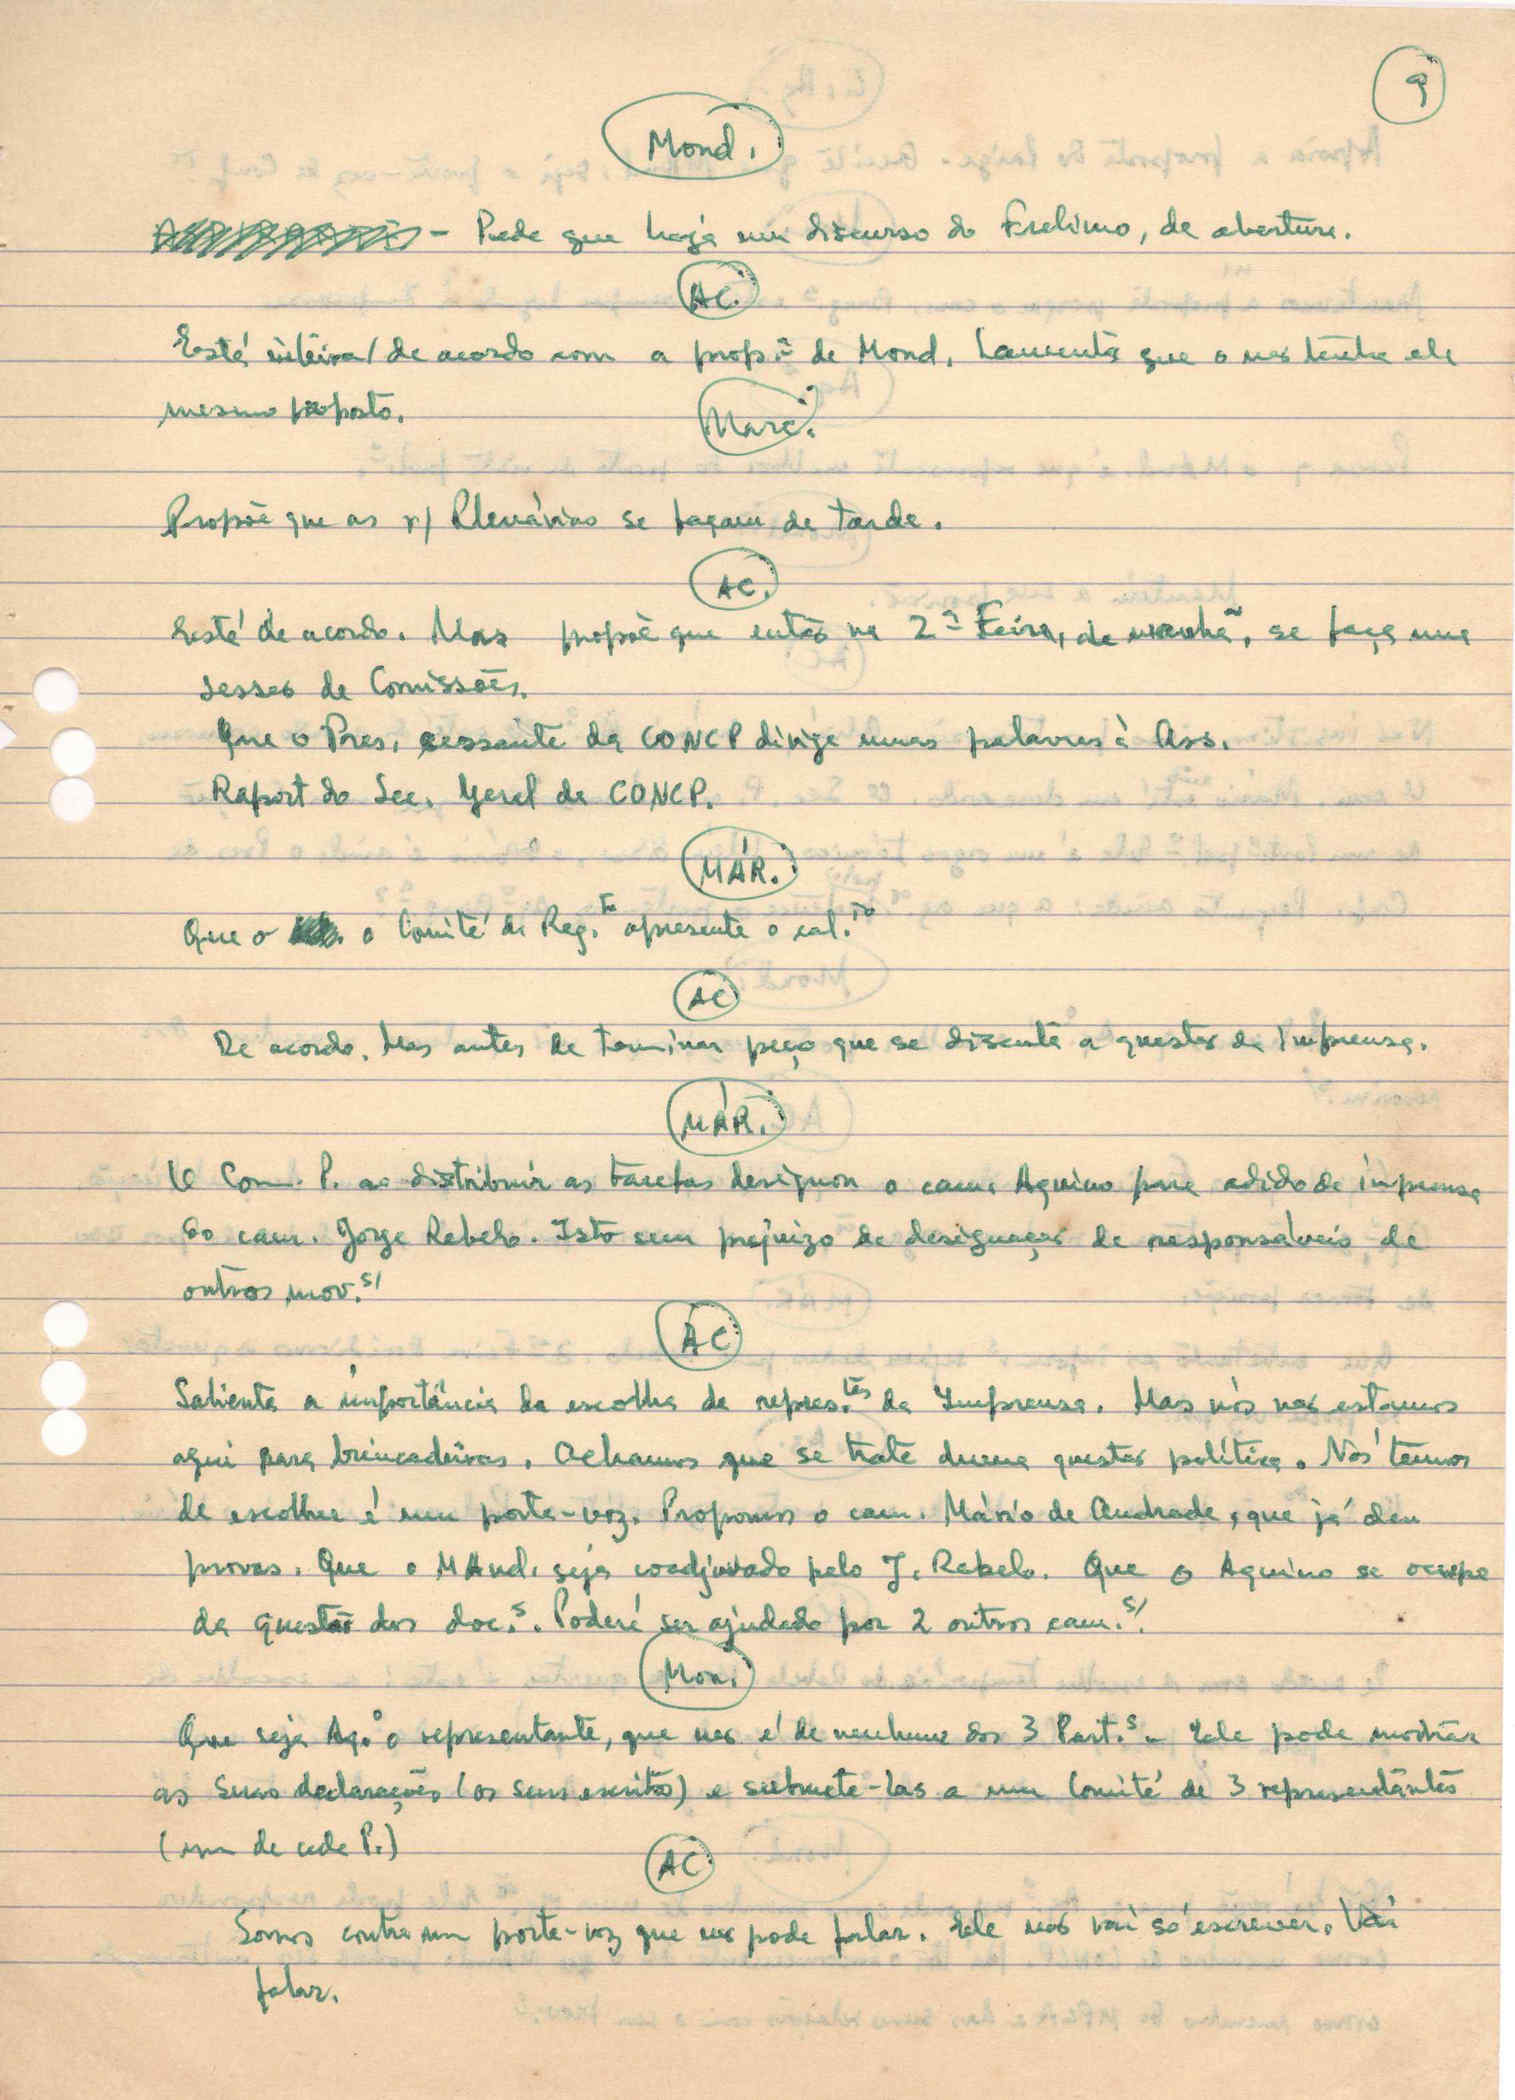 9
Mond.
- Pede que haja um discurso do Frelimo, de abertura.
AC.
Está inteira/ de acordo com a prop.ta de Mond. Lamenta que o não tenha ele
mesmo proposto.
Marc.
Propõe que as r/ Plenárias se façam de tarde.
AC.
Está de acordo. Mas propõe que então na 2ª Feira, de manhã, se faça uma
sessão de Comissões.
Que o Pres. cessante da CONCP dirija umas palavras à Ass.
Raport do Sec. Geral da CONCP.
MÁR.
Que o o Comité de Reg.to apresente o cal.to
AC
De acordo. Mas antes de terminar peço que se discuta a questão da imprensa.
MÁR.
O Com. P. ao distribuir as tarefas designou o cam. Aquino para adido de imprensa
do cam. Jorge Rebelo. Isto sem prejuizo da designação de responsáveis de
outros mov.s/
AC
Salienta a importância da escolha de repres.tes da Imprensa. Mas nós não estamos
aqui para brincadeiras. Achamos que se trate duma questão política. Nós temos
de escolher é um porta-voz. Propomos o cam. Mário de Andrade, que já deu
provas. Que o MAnd. seja coadjuvado pelo J. Rebelo. Que o Aquino se ocupe
da questão dos doc.s. Poderá ser ajudado por 2 outros cam.s/.
Mon.
Que seja Aq.o o representante, que não é de nenhum dos 3 Part.s - Ele pode mostrar
as suas declarações (os seus escritos) e submete-las a um Comité de 3 representantes
(um de cada P.)
AC
Somos contra um porta-voz que não pode falar. Ele não vai só escrever. Vai
falar.